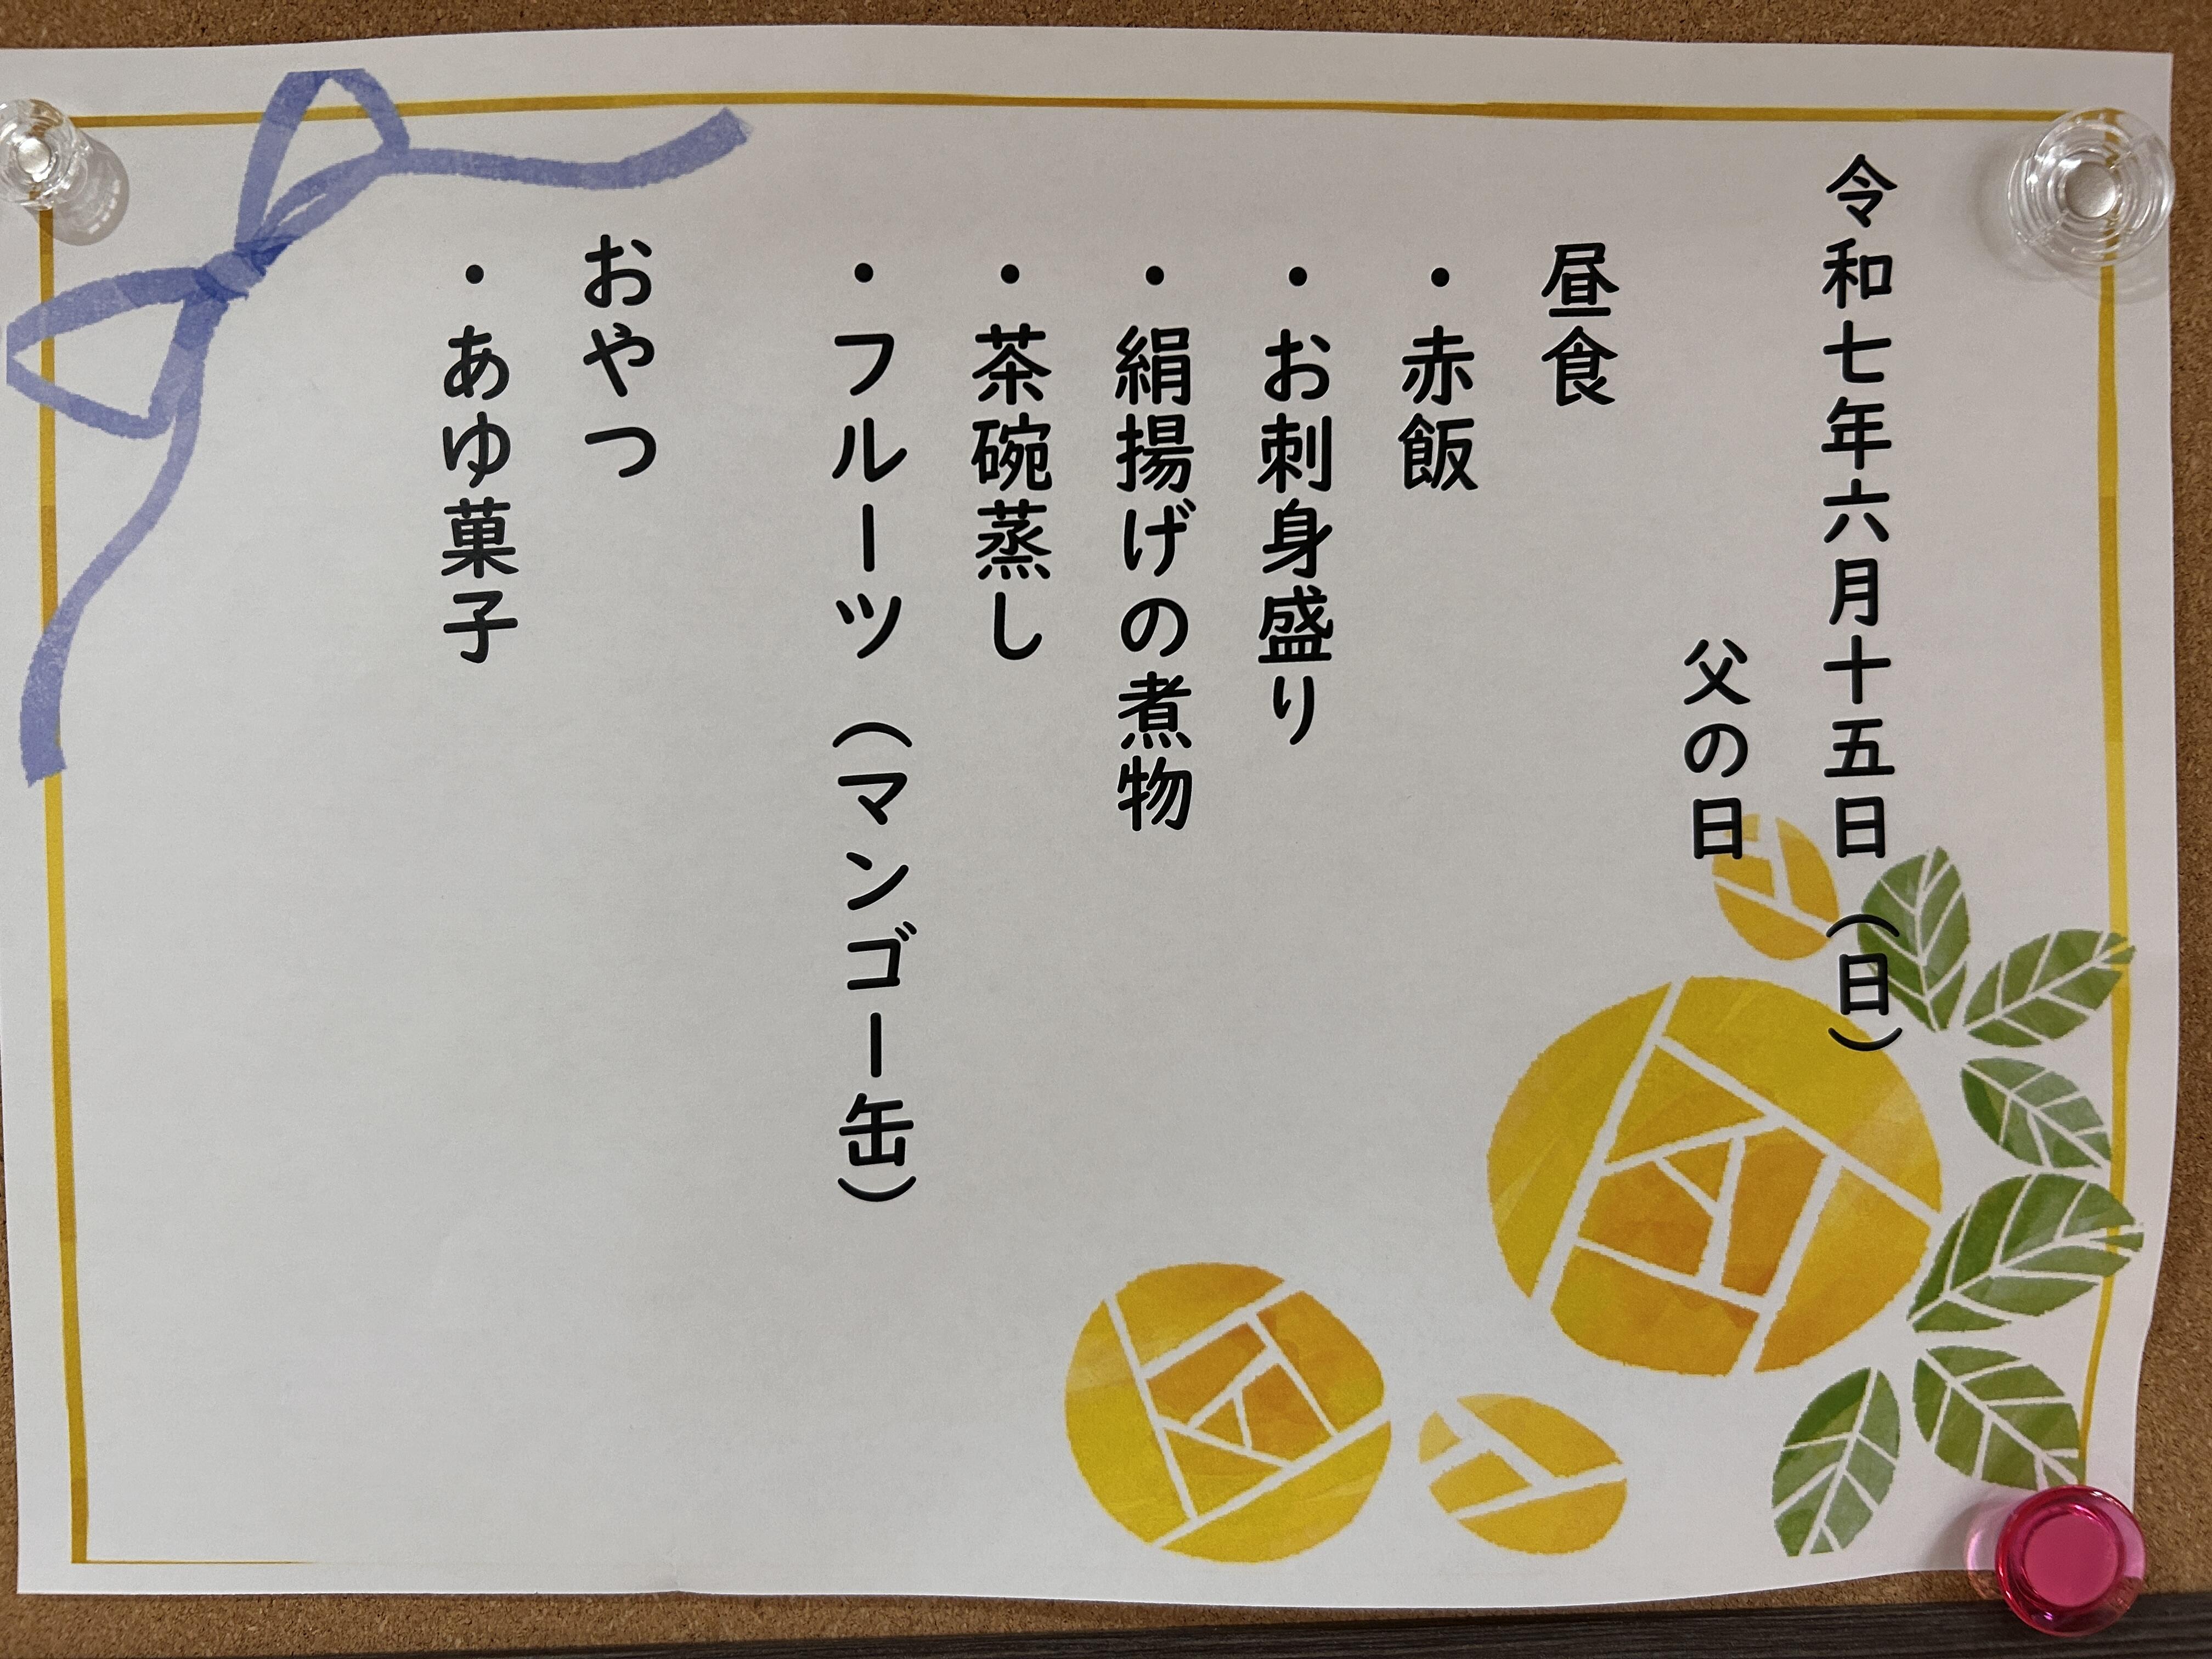 令和七年六月十五日（日）
父の日
昼食
・赤飯
・お刺身盛り
・絹揚げの煮物
・茶碗蒸し
・フルーツ（マンゴー缶）
おやつ
・あゆ菓子